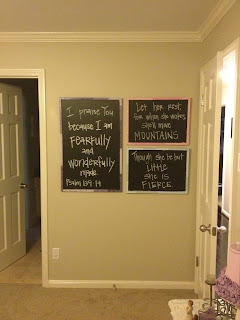 I praise You
because I am
FEARfully
and
wonderfully
made.
Psalm 139:14
Let her rest
for when she wakes
she'll move
MOUNTAINS
Though she be but
Little
she is
FIERCE